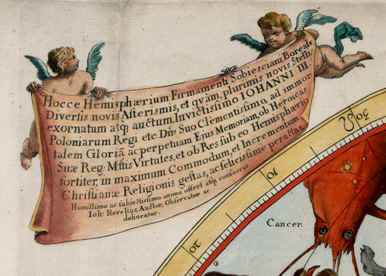 Hocce Hemisphærium Firmamenti Sobiesciani Boreale
Diversis novis Asterismis, et quàm plurimis novis Stellis
exornatum atq auctum, Invictissimo IOHANNI III
Poloniarum Regi etc. Dno Suo Clementissimo, ad immor
talem Gloriã ac perpetuam Ejus Memoriam, ob Heroicas
Suæ Reg. Mtis Virtutes, et ob Res sub eo Hemisphærio
fortiter, in maximum Commodum, et Incrementum
Christianæ Religionis gestas, ac felicissimè peractas
Humillimo ac subjectissimo animo offert atq consecrat
Auctor, Observator ac
Cancer.
20
10
20